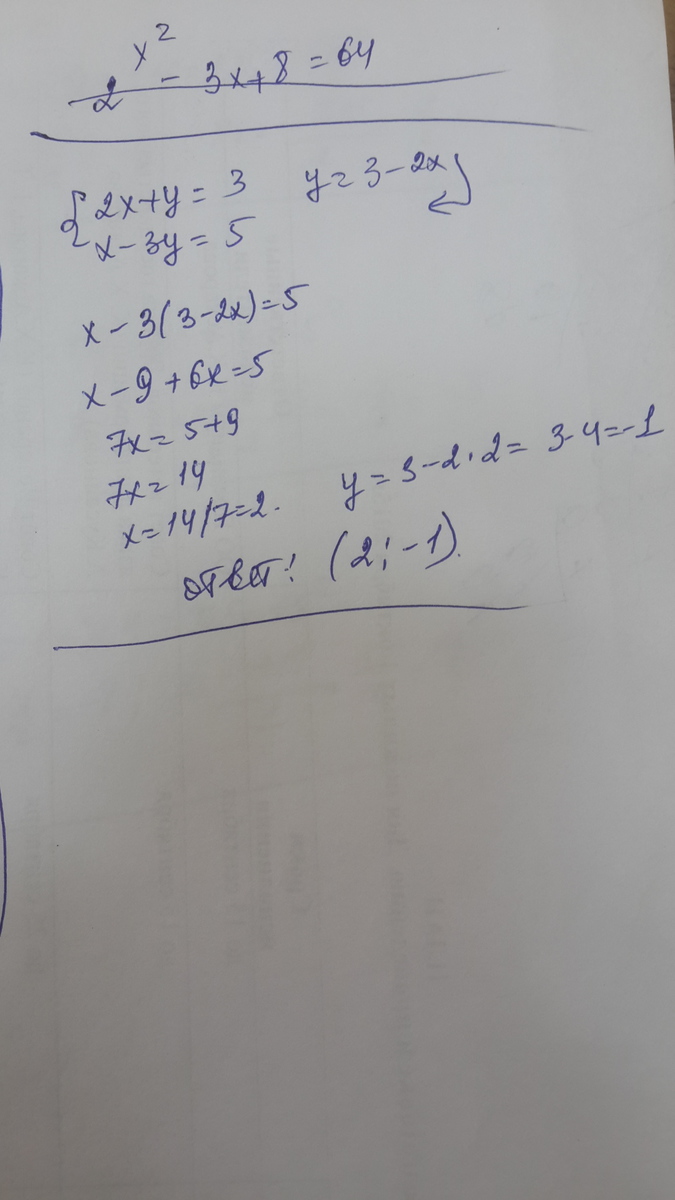 2^{x^2} - 3x + 8 = 64
{ 2x + y = 3    y = 3 - 2x
x - 3y = 5
x - 3(3 - 2x) = 5
x - 9 + 6x = 5
7x = 5 + 9
7x = 14
x = 14/7 = 2.    y = 3 - 2 · 2 = 3 - 4 = -1
ответ: (2; -1).